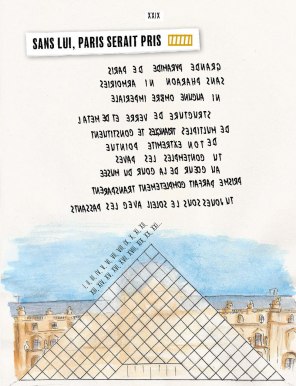 XXIX
SANS LUI, PARIS SERAIT PRIS
GRANDE PYRAMIDE DE PARIS
SANS PHARAON NI ARMOIRIES
NI AUCUNE OMBRE IMPERIALE
STRUCTURE DE VERRE ET DE METAL
DE MULTIPLES TRIANGLES TE CONSTITUENT
DE TON EXTREMITE POINTUE
TU CONTEMPLES LES PAVES
AU COEUR DE LA COUR DU MUSEE
PRISME PARFAIT COMPLETEMENT TRANSPARENT
TU JOUES SOUS LE SOLEIL AVEC LES PASSANTS